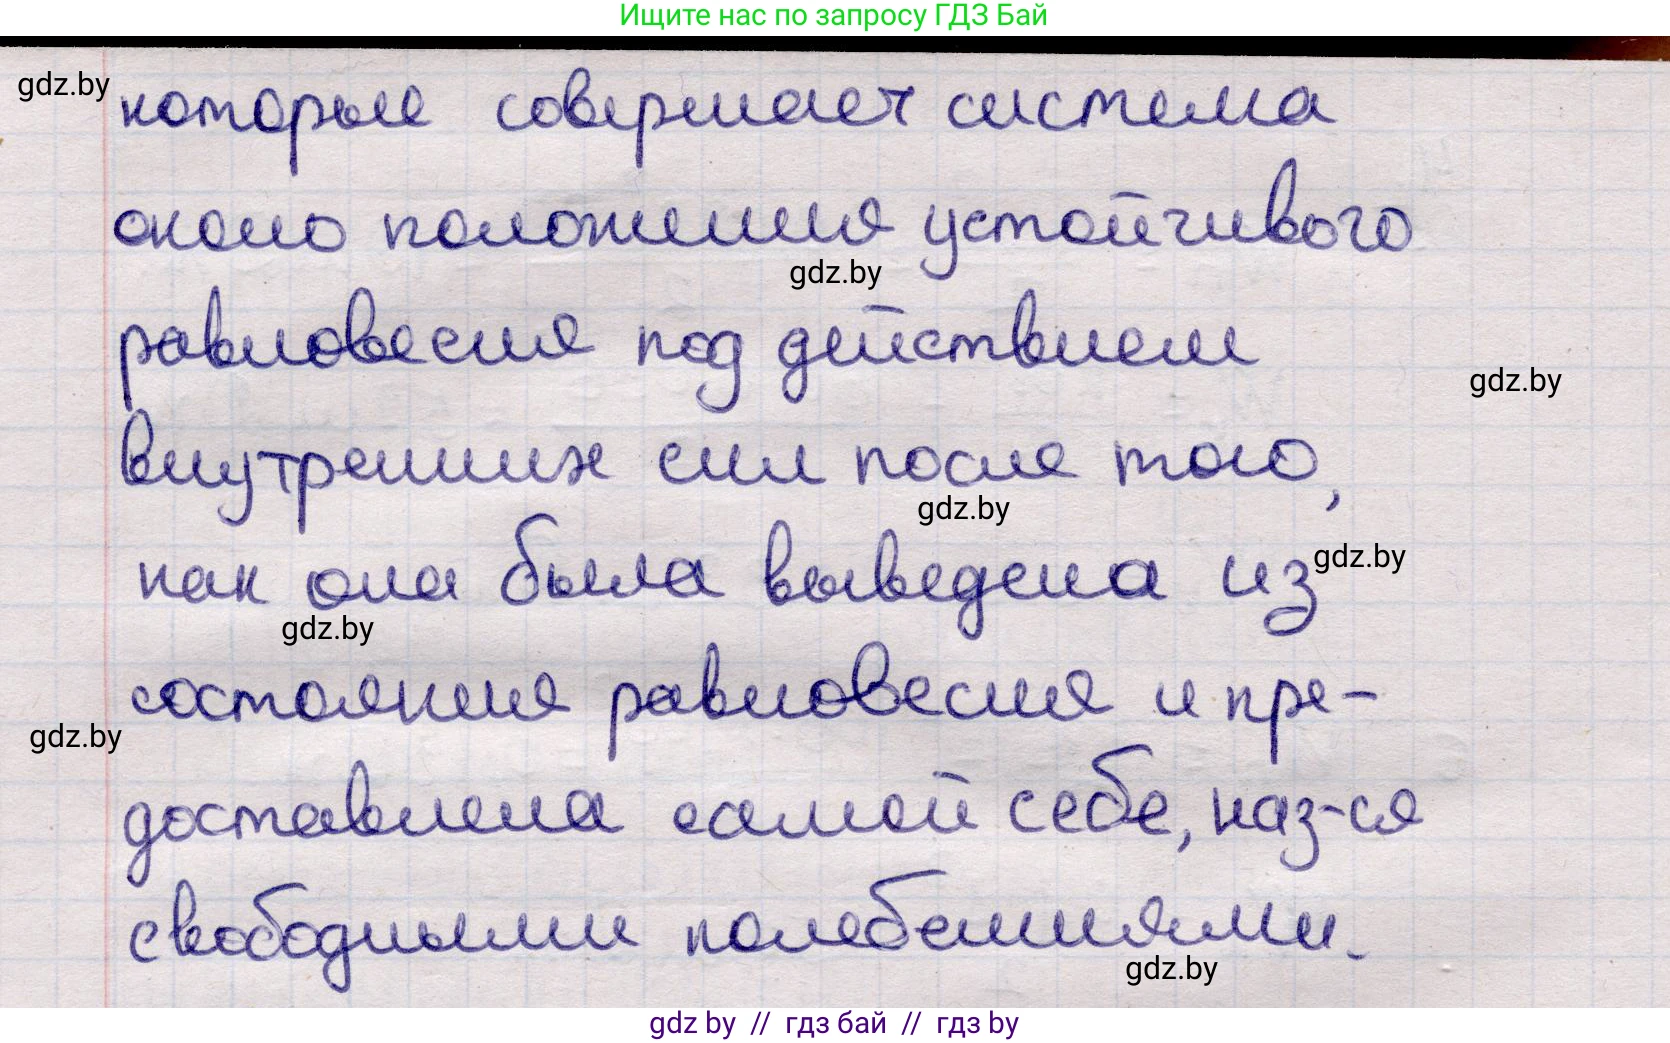 Ищите нас по запросу ГДЗ Бай
gdz.by
которые совершает система
около положения устойчивого
gdz.by
равновесия под действием
gdz.by
внутренних сил после того,
gdz.by
как она была выведена из
gdz.by
gdz.by
состояния равновесия и пре-
gdz.by
доставлена самой себе, наз-ся
свободными колебаниями.
gdz.by
gdz by // гдз бай // гдз by